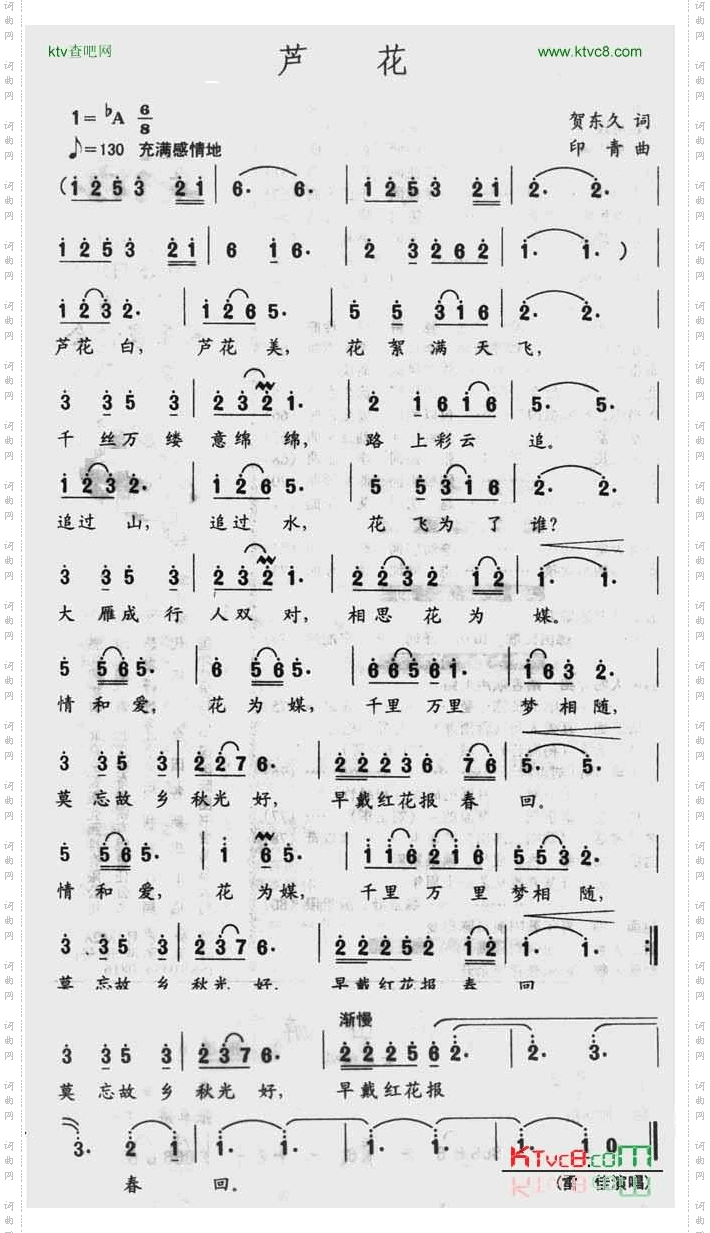 ktv查吧网
芦 花
www.ktvc8.com
1=♭A 6/8
贺东久 词
♪=130 充满感情地
印 青 曲
(1 2 5 3 2 1 | 6· 6· | 1 2 5 3 2 1 | 2· 2· |
1 2 5 3 2 1 | 6 1 6· | 2 3 2 6 2 | 1· 1· )
1 2 3 2· | 1 2 6 5· | 5 5 3 1 6 | 2· 2· |
芦花 白, 芦花 美, 花 絮 满 天 飞,
3 3 5 3 | 2 3 2 1· | 2 1 6 1 6 | 5· 5· |
千 丝万 缕 意绵 绵, 路 上彩云 追。
1 2 3 2· | 1 2 6 5· | 5 5 3 1 6 | 2· 2· |
追过 山, 追过 水, 花 飞为 了 谁?
3 3 5 3 | 2 3 2 1· | 2 2 3 2 1 2 | 1· 1· |
大 雁成 行 人双 对, 相思 花 为 媒。
5 5 6 5· | 6 5 6 5· | 6 6 5 6 1 | 1 6 3 2· |
情 和 爱, 花 为媒, 千里 万里 梦 相 随,
3 3 5 3 | 2 2 7 6· | 2 2 2 3 6 7 6 | 5· 5· |
莫 忘故 乡 秋光 好, 早戴红花报 春 回。
5 5 6 5· | 1 6 5· | 1 1 6 2 1 6 | 5 5 3 2· |
情 和 爱, 花 为媒, 千里 万 里 梦相 随,
3 3 5 3 | 2 3 7 6· | 2 2 2 5 2 1 2 | 1· 1· :||
莫 忘故 乡 秋光 好, 早戴红花报 春 回
渐慢
3 3 5 3 | 2 3 7 6· | 2 2 2 2 5 6 2· | 2· 3· |
莫 忘故 乡 秋光 好, 早戴红花报
3· 2 1 | 1· 1· | 1· 1· | 1· 1 0 ||
春 回。
KTvc8.com
(雷 佳演唱)